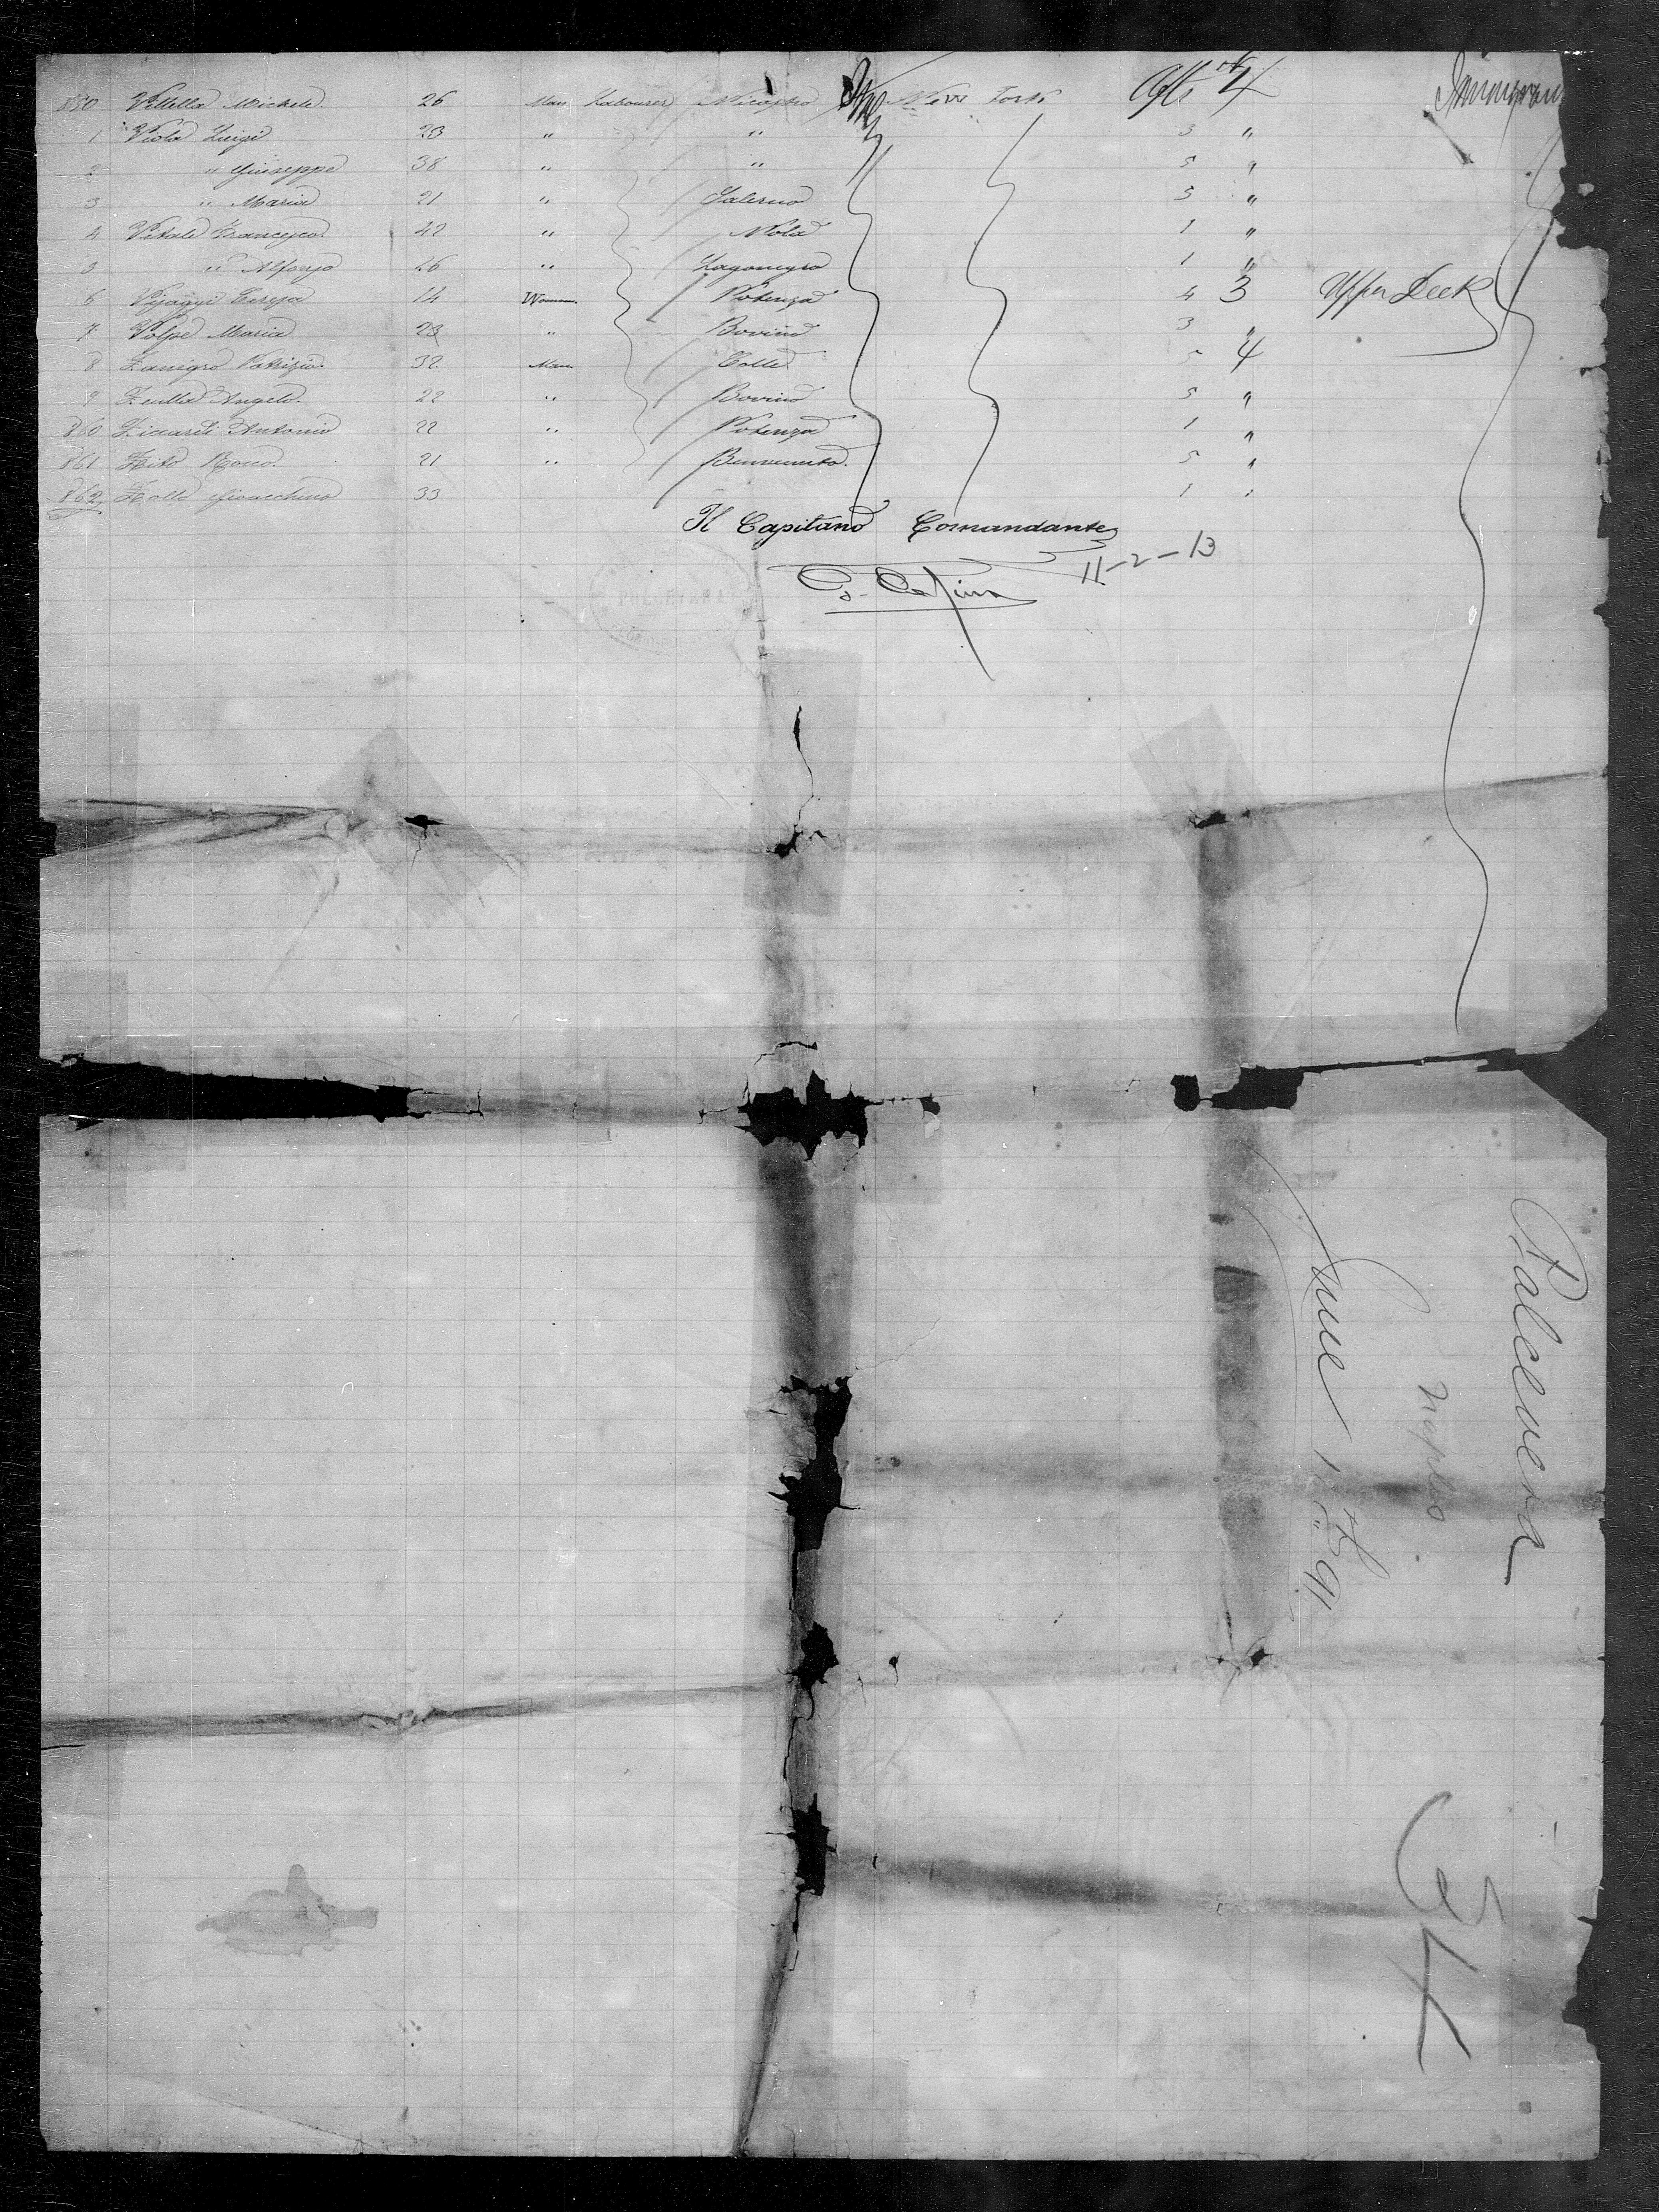 850 Villella Michele. 26 Man Labourer Nicastro New York Aft. 4 Immigran
1 Viola Luigi 23 " " 3 "
2 " Giuseppe 38 " " 5 "
3 " Maria 21 " Salerno 5 "
4 Vitale Francesco. 42 " Nola 1 "
5 " Alfonso 26 " Lagonegro 1 "
6 Teresa 14 Woman. Potenza 4 3 Upper Deck
7 Volpe Maria 23 " Bovino 3 "
8 Zanigro Patrizio. 32 Man. Colle 5 4
9 Zculla Angelo. 22 " Bovino 5 "
860 Ziccardi Antonio 22 " Potenza 1 "
861 Zito Rocco. 21 " Benevento. 5 "
862 Zollo Gioacchino 33 1 "
Il Capitano Comandante
11-2-13
POLCEVERA
Palcevera
Naples
June 1st 91
34